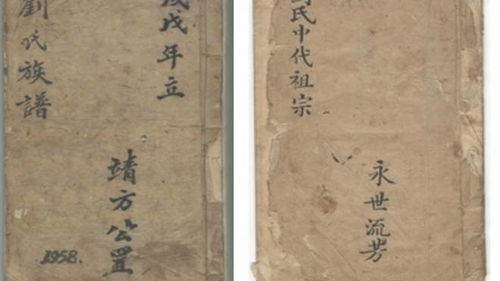 戊戌年立
靖方公置
劉氏族譜
1958.
氏中代祖宗
永世流芳